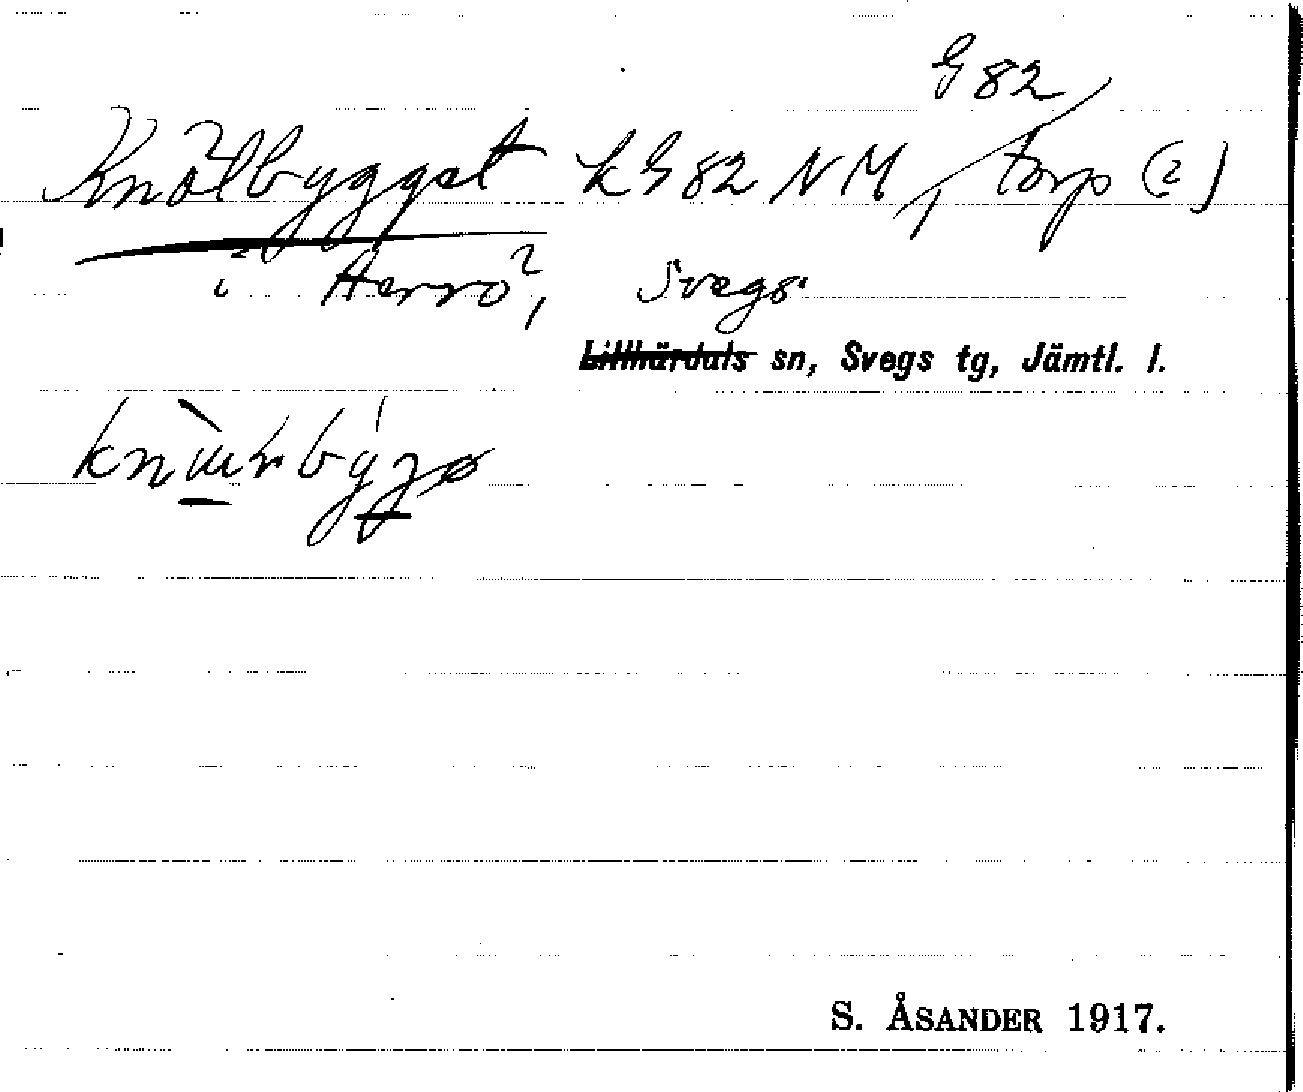 G 82
Knölbygget LG 82 NM, torp (2)
i Herrö, Svegs
Lillhärdals sn, Svegs tg, Jämtl. l.
S. ÅSANDER 1917.